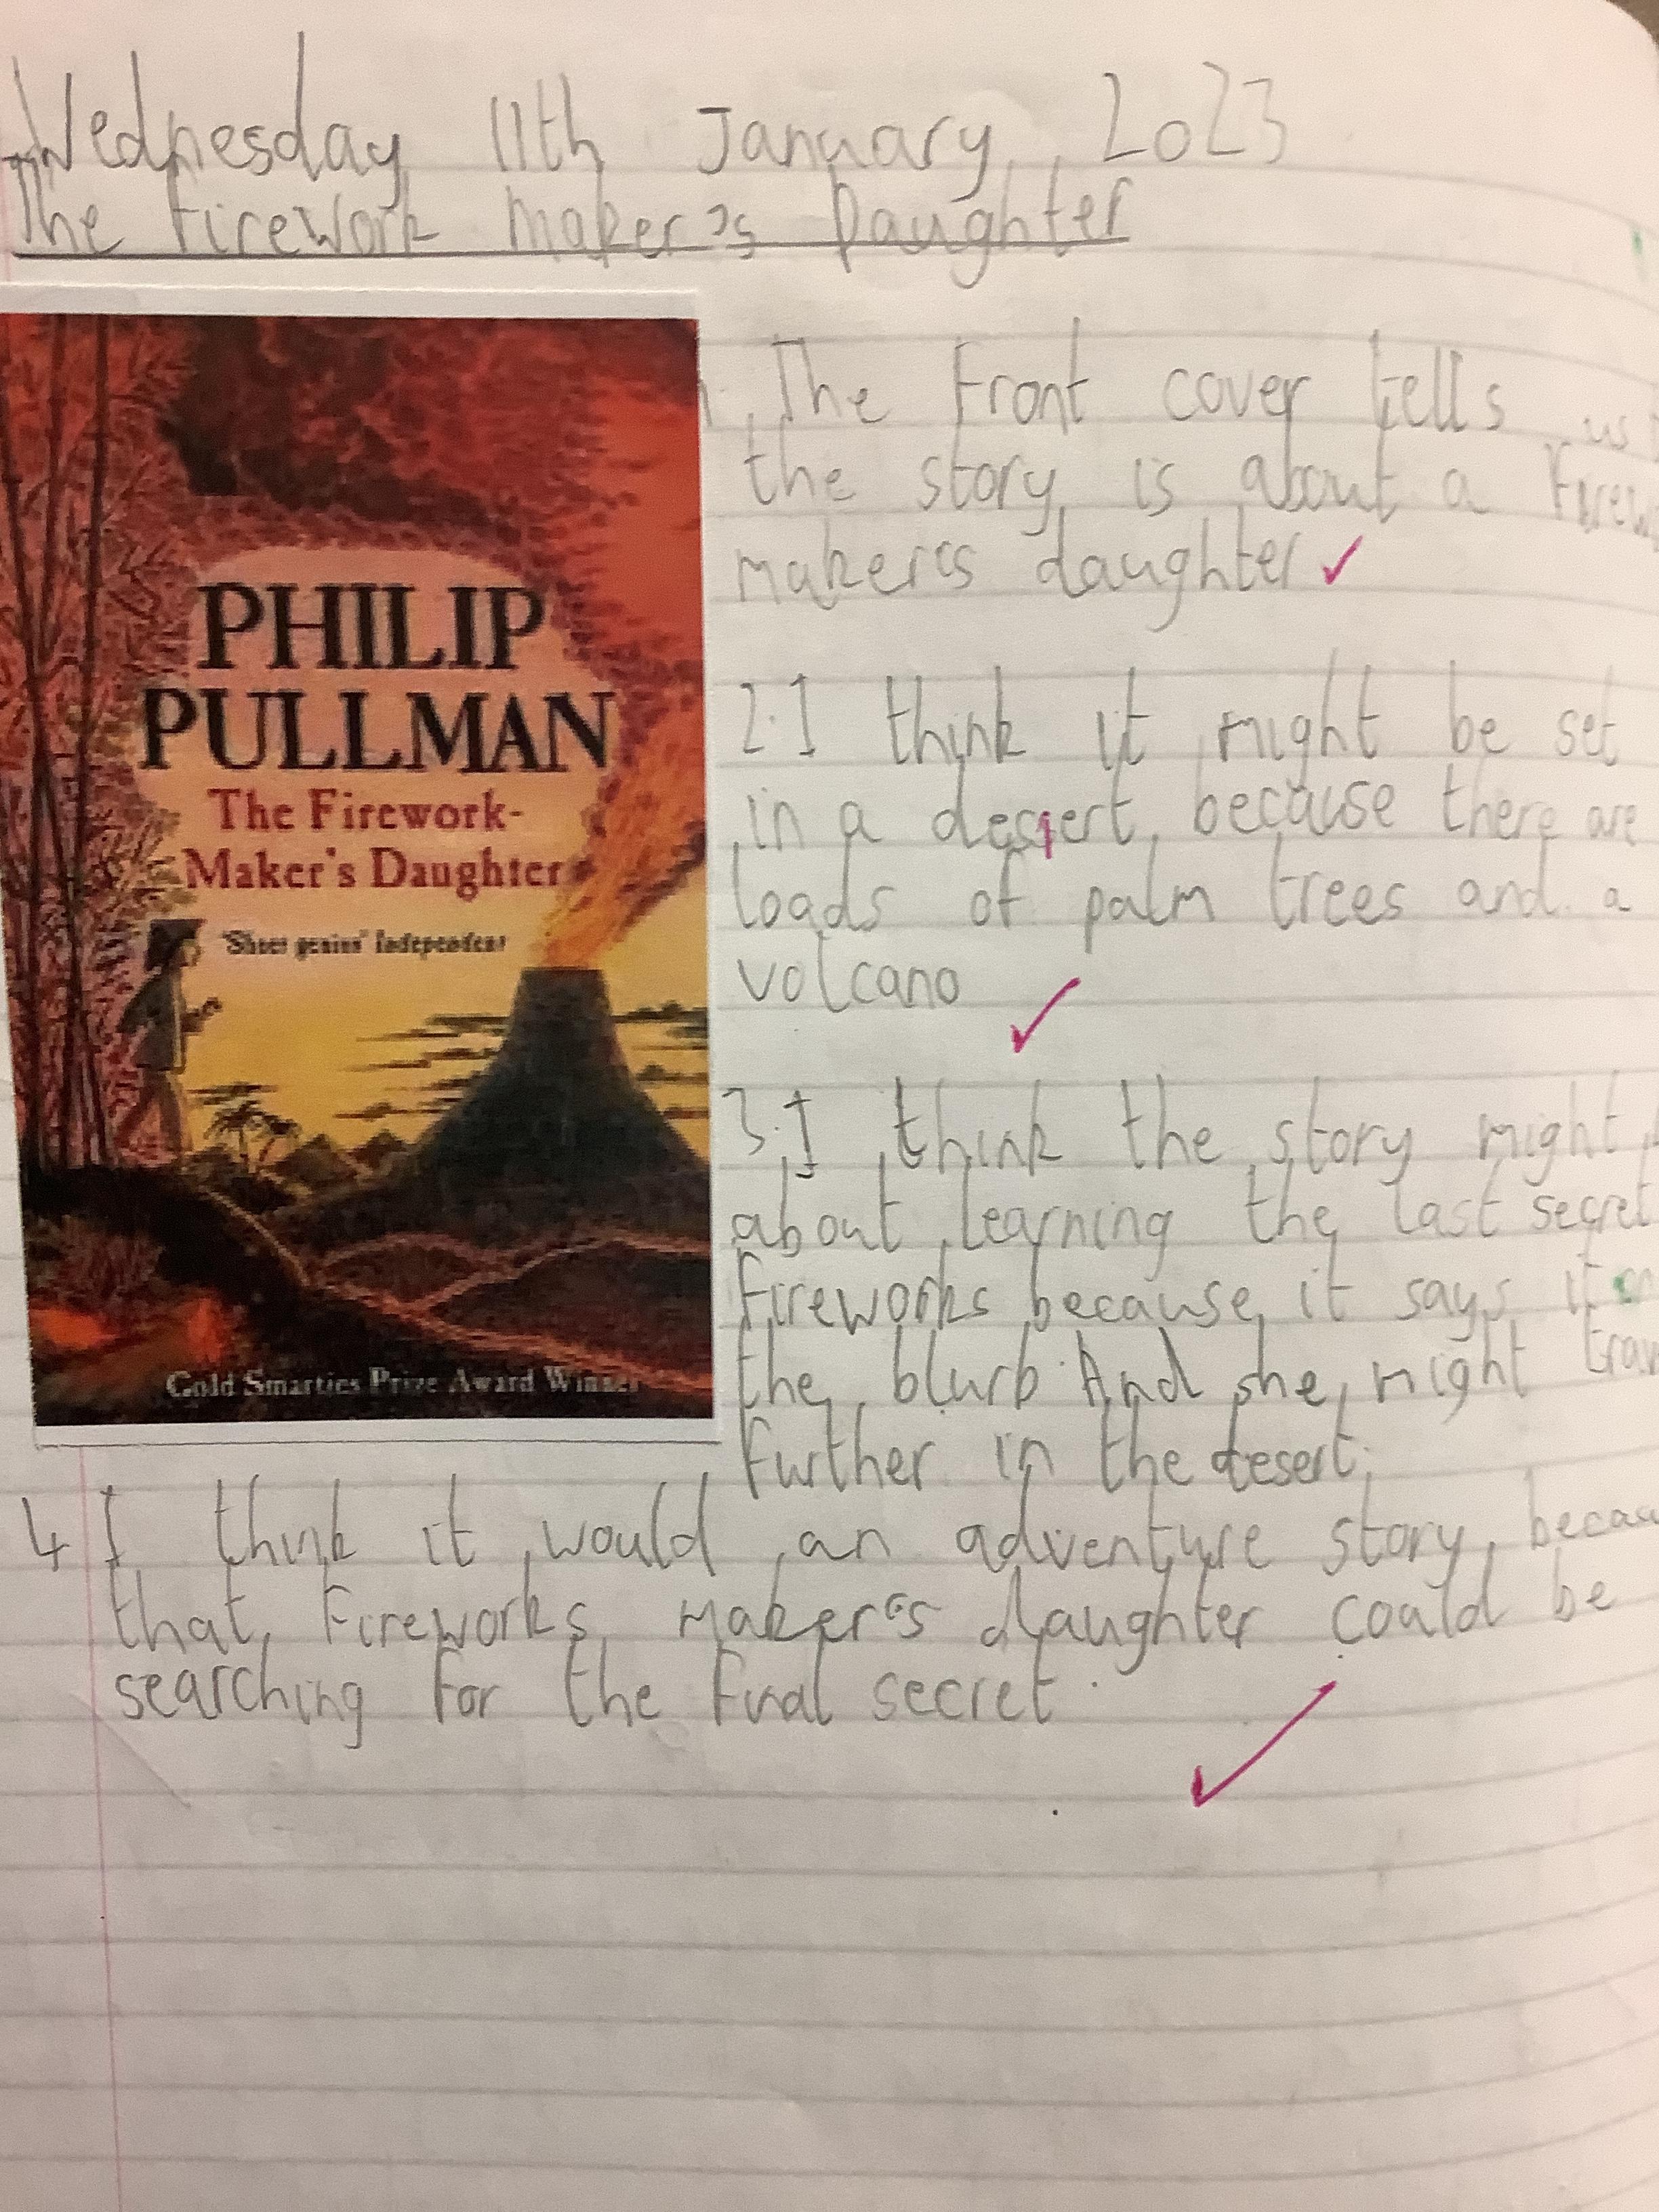 Wednesday 11th January 2023
The Firework Maker's Daughter
PHILIP
PULLMAN
The Firework-
Maker's Daughter
'Sheer genius' Independent
Gold Smarties Prize Award Winner
1. The front cover tells us
the story is about a
maker's daughter
2. I think it might be set
in a desert, because there are
loads of palm trees and a
volcano
3. I think the story might
about learning the last secret
fireworks because it says it
the blurb. And she might
further in the desert.
4 I think it would an adventure story, because
that fireworks maker's daughter could be
searching for the final secret.